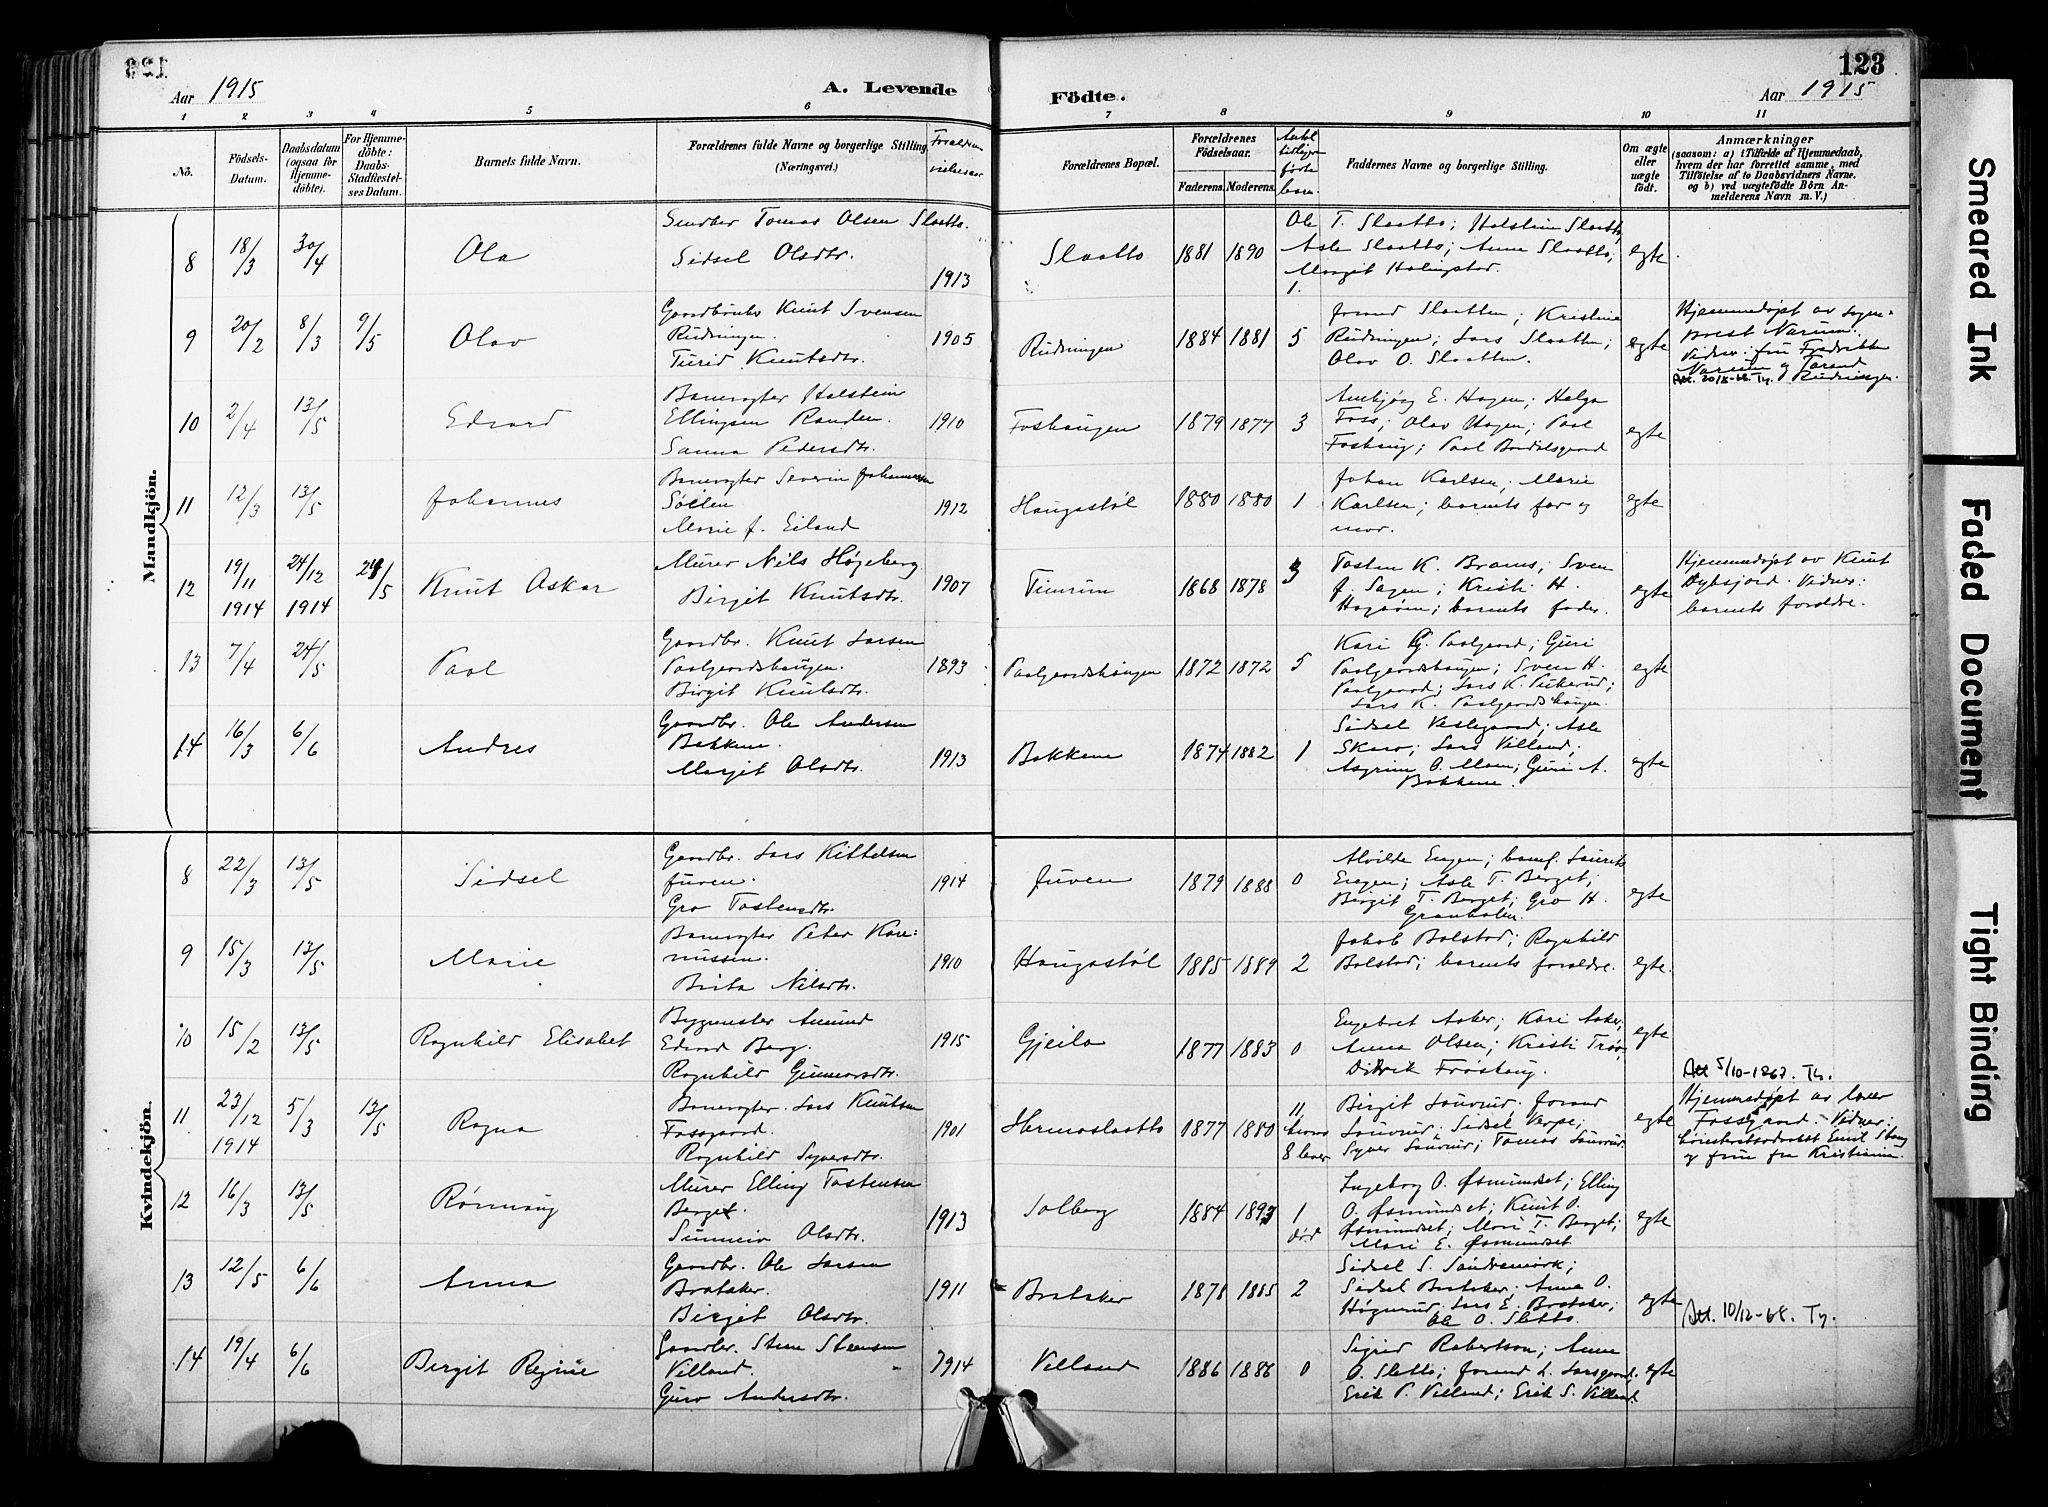 123
Aar 1915
A. Levende
Födte.
Aar 1915
1 2 3 4 5 6 7 8 9 10 11
No.
Födsels-Datum.
Daabsdatum (ogsaa for Hjemmedöbte).
For Hjemmedöbte: Daabs-Stadfæstelses Datum.
Barnets fulde Navn.
Forældrenes fulde Navne og borgerlige Stilling (Næringsvei.)
Forældrenes Bopæl.
Forældrenes Födselsaar.
Faderens. Moderens.
Antal tidligere fødte barn.
Faddernes Navne og borgerlige Stilling.
Om ægte eller uægte födt.
Anmærkninger
(saasom: a) i Tilfælde af Hjemmedaab, hvem der har forrettet samme, med Tilföielse af to Daabsvidners Navne, og b) ved uægtefödte Börn Anmelderens Navn m. V.)
Mandkjön.
8 18/3 30/4 Ola
Smedber Tomas Olsen Slaatto.
Sidsel Olsdtr. 1913
Slaatto 1881 1890 1.
Ole T. Slaatto; Holstein Slaatto,
Asle Slaatto; Anne Slaatto;
Margit Halingstad.
egte
9 20/2 8/3 9/5 Olav
Gaardbruker Knut Svensen
Rudningen.
Turid Knutsdtr. 1905
Rudningen 1884 1881 5
Jorand Slaatten; Kristine
Rudningen; Lars Slaatten;
Olav O. Slaatten.
egte
Hjemmedøpt av sogneprest Narum.
Vidner: fru Fredrikke
Narum og Jorand Rudningen.
10 2/4 13/5 Edvard
Banevogter Holstein
Ellingsen Randen.
Sanna Pedersdtr. 1910
Foshaugen 1879 1877 3
Ambjørg E. Hagen; Helga
Foss; Olav Hagen; Paal
Foshaug; Paal
egte
11 12/3 13/5 Johannes
Banevogter Severin Johannessen
Marie J. Eiland 1912
Haugastøl 1880 1880 1
Johan Karlsen; Marie
Karlsen; barnets far og
mor.
egte
12 19/11 1914 24/12 1914 24/5 Knut Oskar
Murer Nils Høgeberg
Birgit Knutsdtr. 1907
Timrum 1868 1878 3
Tosten K. Brams; Sven
J. Sagen; Kristi H.
barnets fader.
egte
Hjemmedøpt av Knut
Dybsjord. Vidner:
barnets foreldre.
13 7/4 24/5 Paal
Gaardbr. Knut Larsen
Paalgaardshaugen.
Birgit Knutsdtr. 1893
Paalgaardshaugen 1872 1872 5
Kari G. Paalgaard; Guri
Paalgaardshaugen; Sven H.
Paalgaard; Lars K.
Lars K. Paalgaardshaugen
egte
14 16/3 6/6 Andres
Gaardbr. Ole Andersen
Bakkene.
Margit Olsdtr. 1913
Bakkene 1874 1882 1
Sidsel Vestegaard; Asle
Skaro; Lars Villand;
Asgrim O. Moen; Guri A.
Bakkene.
egte
Kvindekjön.
8 22/3 13/5 Sidsel
Gaardbr. Lars Kittelsen
Juven.
Gro Tostensdtr. 1914
Juven 1879 1888 0
Alvilde Engen;
Engen; Asle T. Berget;
Birgit T. Berget; Gro H.
Granhalen.
egte
9 15/3 13/5 Marie
Banevogter Peter
Brita Nilsdtr. 1910
Haugastøl 1885 1889 2
Jakob Bolstad; Ragnhild
Bolstad; barnets foreldre.
egte.
10 15/2 13/5 Ragnhild Elisabet
Bygmester Amund
Edvard Berg.
Ragnhild Gunnarsdtr. 1915
Gjeilo 1877 1883 0
Engebret Aaker; Kari Aaker;
Anna Olsen; Kristi Trøo,
Didrik Frøshaug.
egte
Att 5/10-1967. Ty.
11 23/12 1914 5/3 13/5 Ragna
Banevogter Lars Knutsen
Fossgaard.
Ragnhild Syversdtr. 1901
Hermoslaatto 1877 1880 11, hvorav 8 lever
Birgit Sauvrud; Jorand
Sauvrud; Sidsel
Syver Sauvrud; Tomas Sauvrud.
egte
Hjemmedøpt av lærer
Fossgaard. Vidner:
høiesteretsadvokat Emil Stang
og frue fra Kristiania.
12 16/3 13/5 Rønnaug
Murer Elling Tostensen
Berget.
Sunneva Olsdtr. 1913
Solberg 1884 1893 1 død
Ingeborg O. Øsmundset; Elling
O. Øsmundset; Knut O.
Øsmundset; Mari T. Berget;
Mari E. Øsmundset
egte
13 12/5 6/6 Anna
Gaardbr. Ole Larsen
Brataker.
Birgit Olsdtr. 1911
Brataker 1878 1885 2
Sidsel S. Sundremork;
Sidsel Brataker; Anne O.
Høgnerud; Lars E. Brataker;
Ole O. Sletto.
egte
Att. 10/12-68. Ty.
14 19/4 6/6 Birgit Regine
Gaardbr. Sten Stensen
Villand.
Guro Andersdtr. 1914
Villand 1886 1886 0
Sigrid Robertson; Anne
O. Sletto; Jorand L. Larsgaard;
Erik P. Villand; Erik S. Villand.
egte
Smeared Ink
Faded Document
Tight Binding